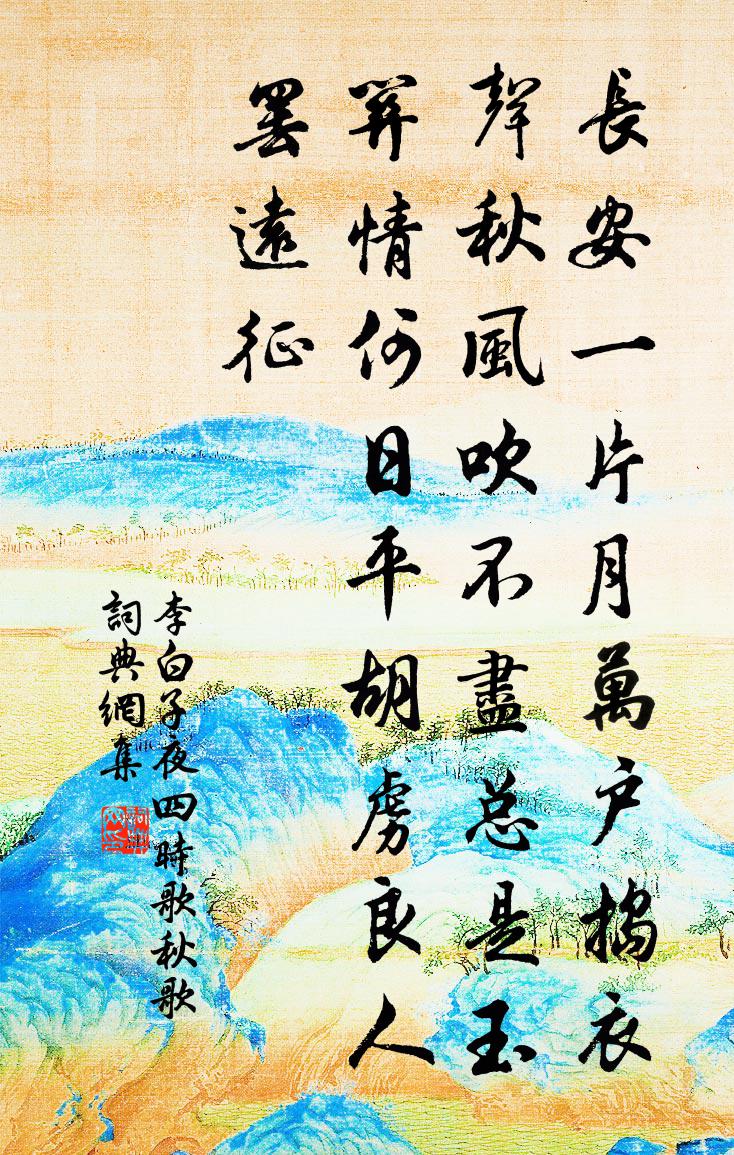 長安一片月萬户搗衣
聲秋風吹不盡总是玉
關情何日平胡虜良人
罷遠征
李白子夜四時歌秋歌
詞典網集